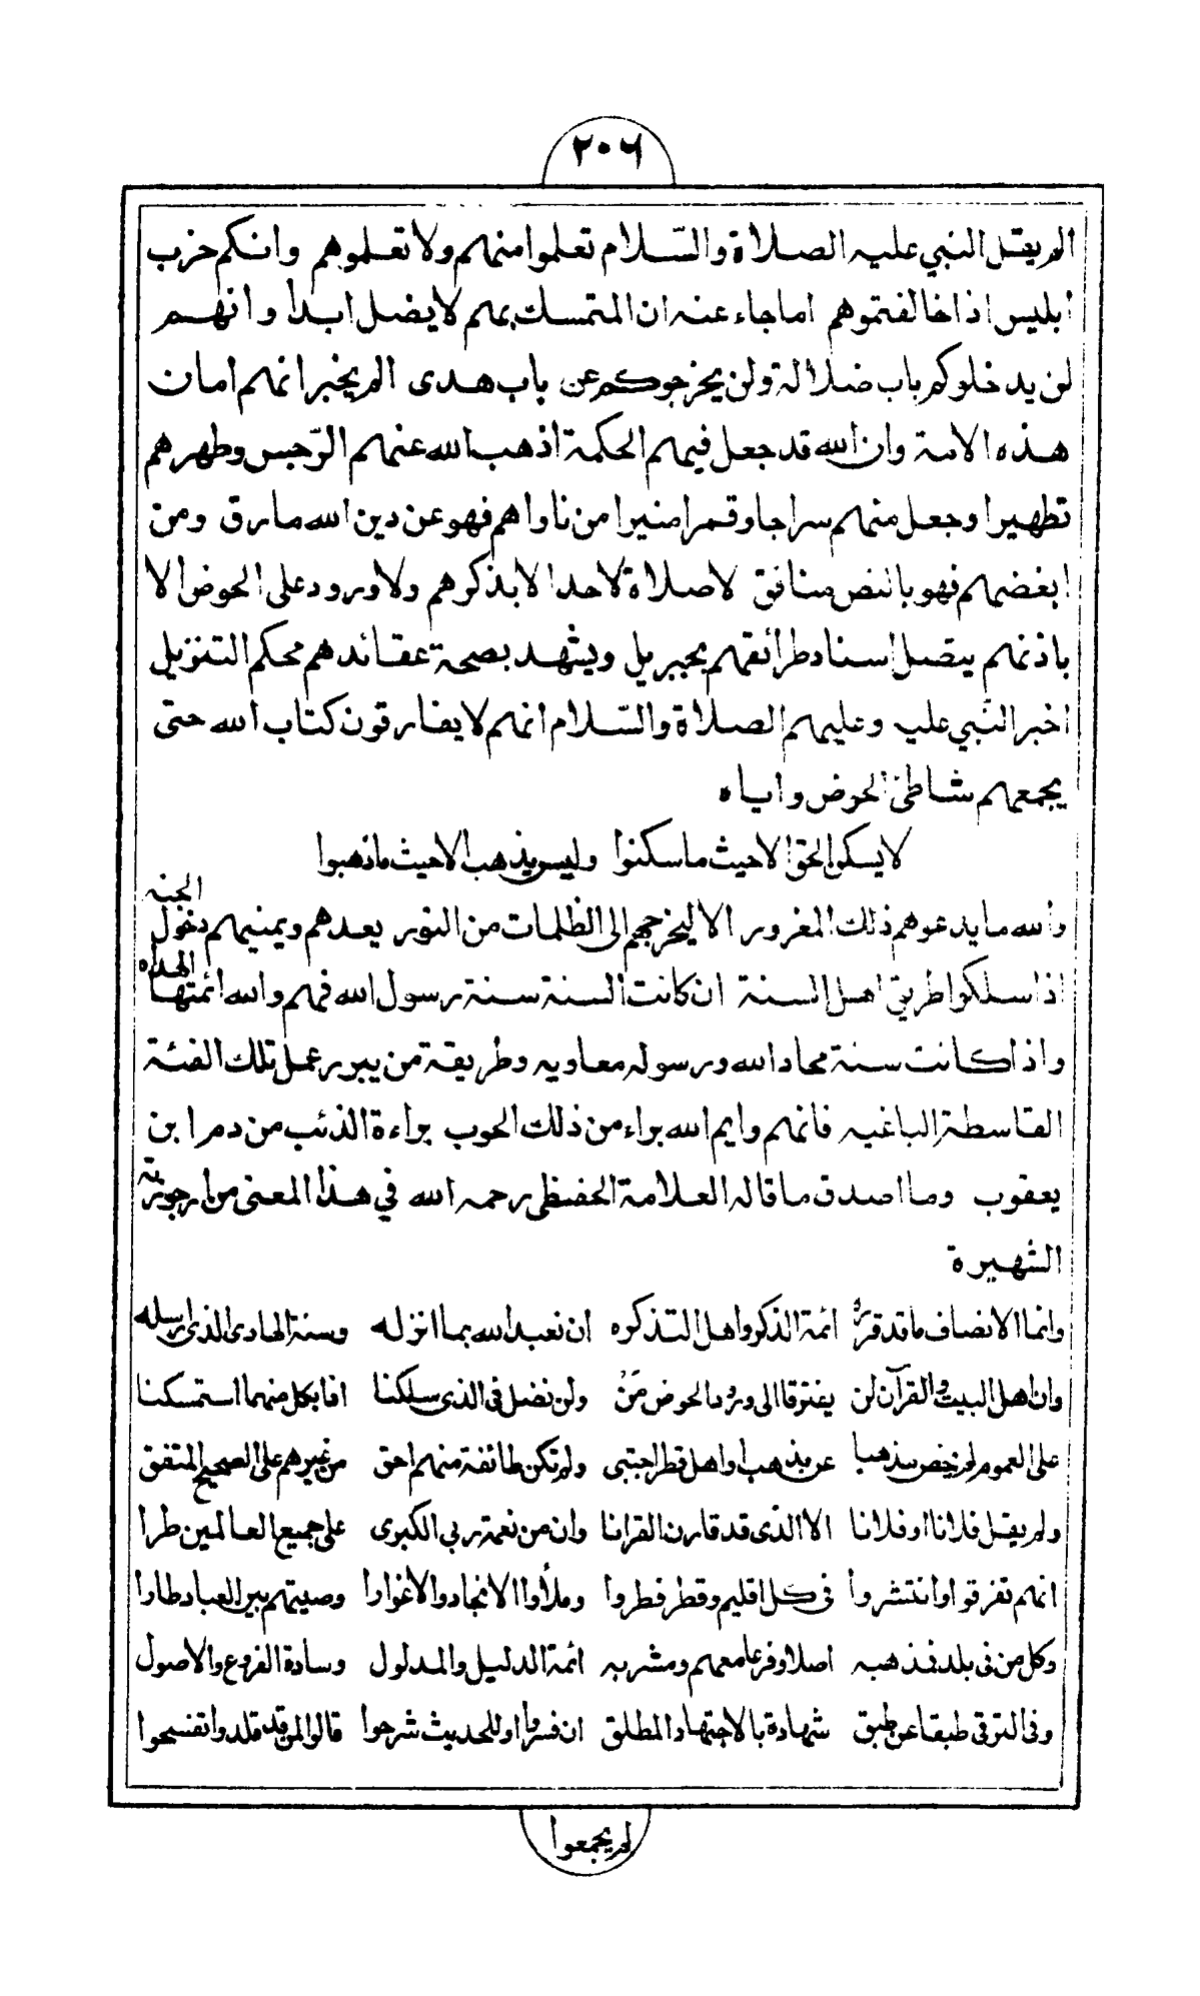 ٢٠٦
الم يقل النبي عليه الصلاة والسّلام تعلموا منهم ولا تعلموهم وانكم حزب
أبليس اذا خالفتموهم اما جاء عنه ان المتمسك بهم لا يضل ابدا وانهم
لن يدخلوكم باب ضلالة ولن يخرجوكم عن باب هدى الم يخبر انهم امان
هذه الامة وان الله قد جعل فيهم الحكمة اذهب الله عنهم الرّجس وطهرهم
تطهيرا وجعل منهم سراجا وقمرا منيرا من ناواهم فهو عن دين الله مارق ومن
ابغضهم فهو بالنص منافق لا صلاة لاحد الا بذكرهم ولا ورود على الحوض الا
باذنهم يتصل اسناد طرائقهم بجبريل ويشهد بصحة عقائدهم محكم التنزيل
اخبر النّبي عليه وعليهم الصلاة والسّلام انهم لا يفارقون كتاب الله حتى
يجمعهم شاطئ الحوض واياه
لا يسكن الحق الا حيث ما سكنوا وليس يذهب الا حيث ما ذهبوا
والله ما يدعوهم ذلك المغرور الا ليخرجهم الى الظلمات من النور يعدهم ويمنيهم دخول الجنه
اذا سلكوا طريق اهل السنة ان كانت السنة سنة رسول الله فهم والله ائمتها الهداه
واذا كانت سنة محاد الله ورسوله معاويه وطريقة من يبرر عمل تلك الفئة
القاسطة الباغيه فانهم وايم الله براء من ذلك الحوب براءة الذئب من دم ابن
يعقوب وما اصدق ما قاله العلامة الحفظي رحمه الله في هذا المعنى من ارجوزته
الشهيرة
وانما الانصاف ما قد قرّره ائمة الذكر واهل التذكره ان نعبد الله بما انزله وسنة الهادى الذى ارسله
وان اهل البيت والقرآن لن يفترقا الى ورود الحوض مَنْ ولن نضل فى الذى سلكنا اذا بكل منهما استمسكنا
على العموم لم يخص مذهبا عن مذهب او اهل قطر اجتبى ولم تكن طائفة منهم احق من غيرهم على الصحيح المتفق
ولم يقل فلانا او فلانا الا الذى قد قارن القرانا وان من نعمة ربي الكبرى على جميع العالمين طرا
انهم تفرقوا وانتشروا فى كل اقليم وقطر فطروا وملأوا الانجاد والاغوارا وصيتهم بين العباد طارا
وكل من فى بلد فذهبه اصلا وفرعا معهم ومشربه ائمة الدليل والمدلول وسادة الفروع والاصول
وفى الترقى طبقا عن طبق شهادة بالاجتهاد المطلق ان فسروا او للحديث شرحوا قالوا لمن قد قلدوا تفسحوا
لم يجمعوا